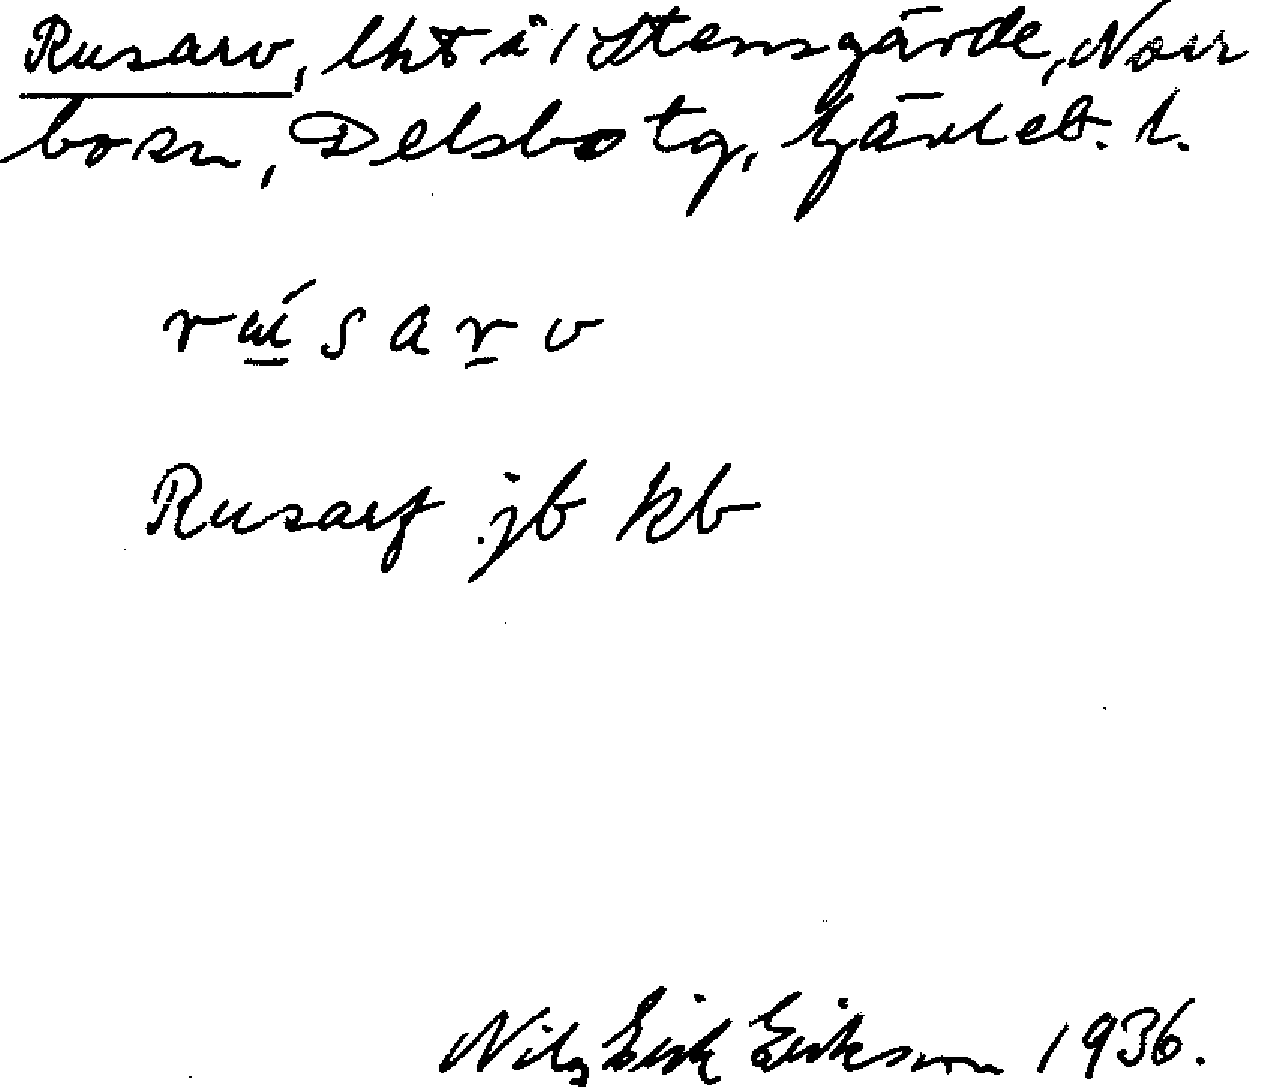 Rusarv, lht i 1 Stensgärde, Norr
boån, Delsbo tg, Gävleb. l.
rúsarv
Rusarf jb kb
Nils Erik Erikson 1936.